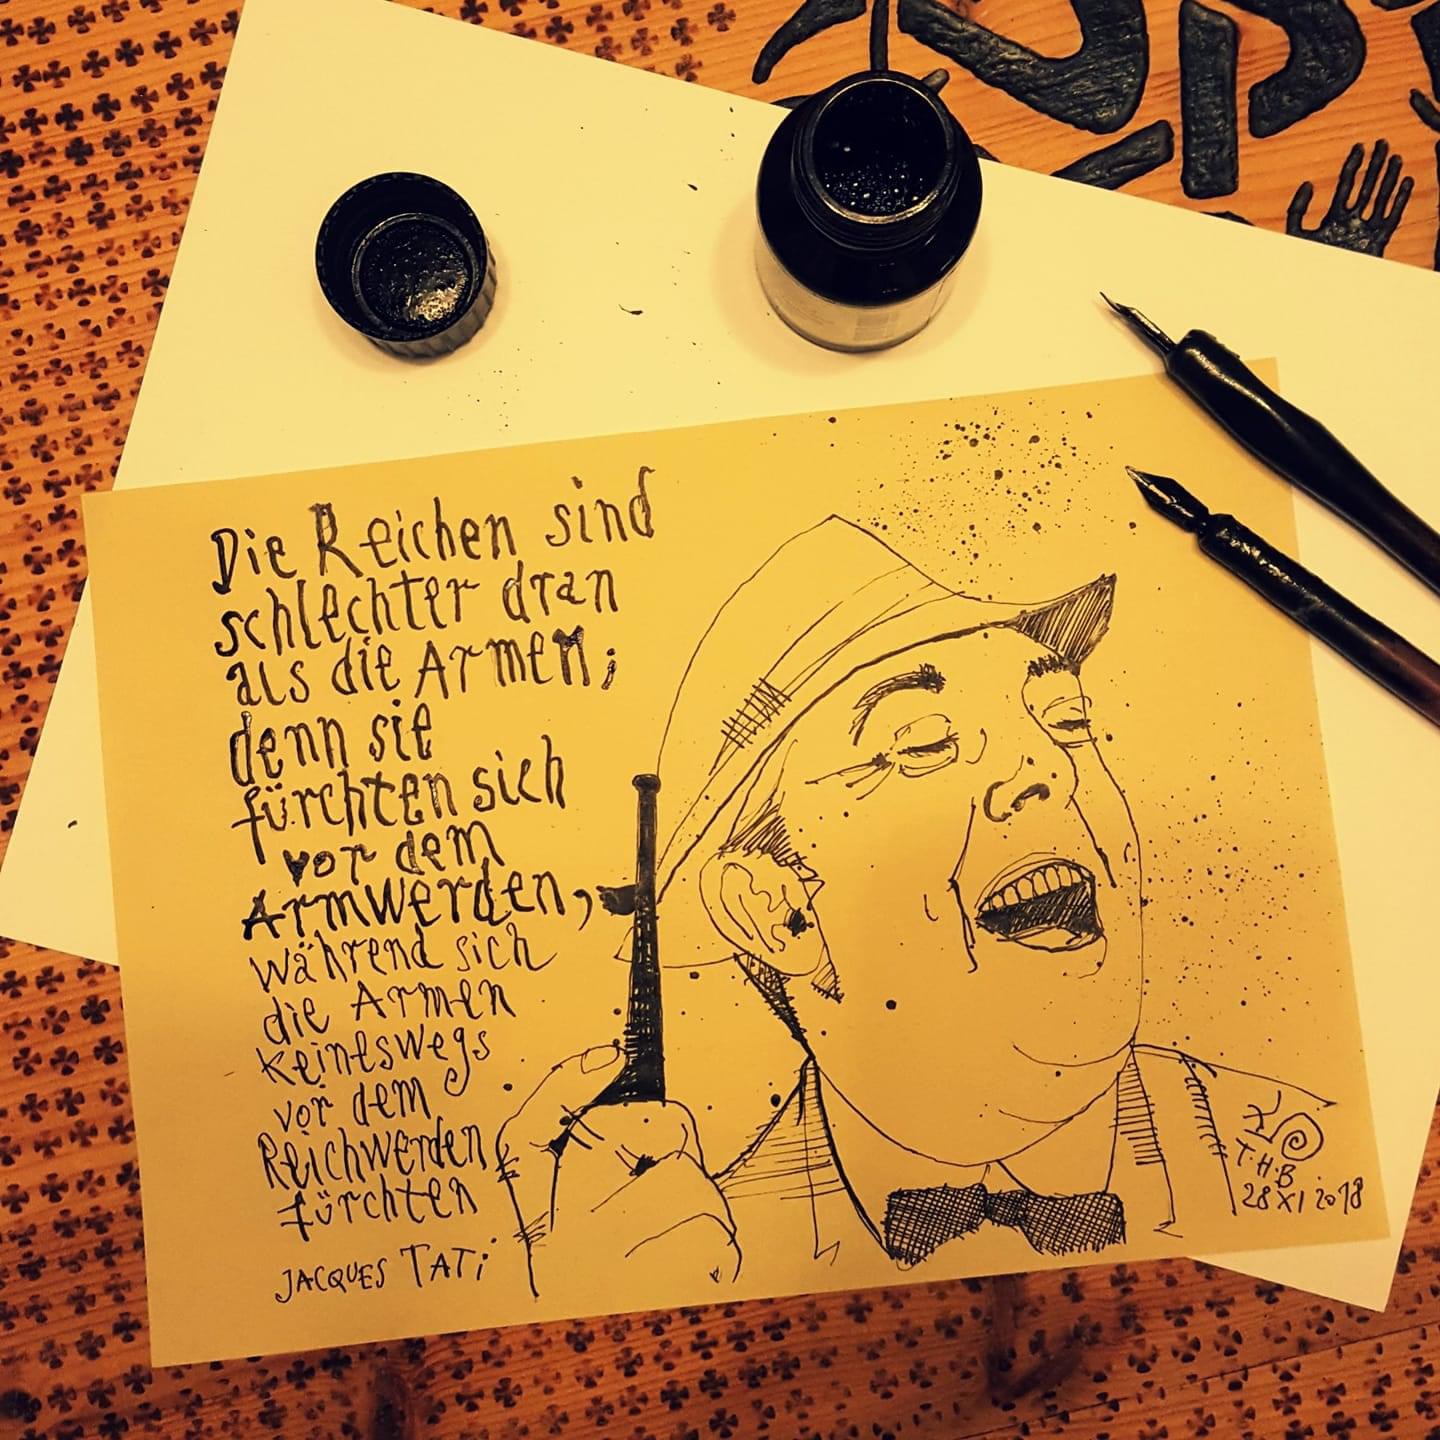 Die Reichen sind
schlechter dran
als die Armen;
denn sie
fürchten sich
vor dem
Armwerden,
während sich
die Armen
keineswegs
vor dem
Reichwerden
fürchten
JACQUES TATi
T.H.B
28 XI 2018